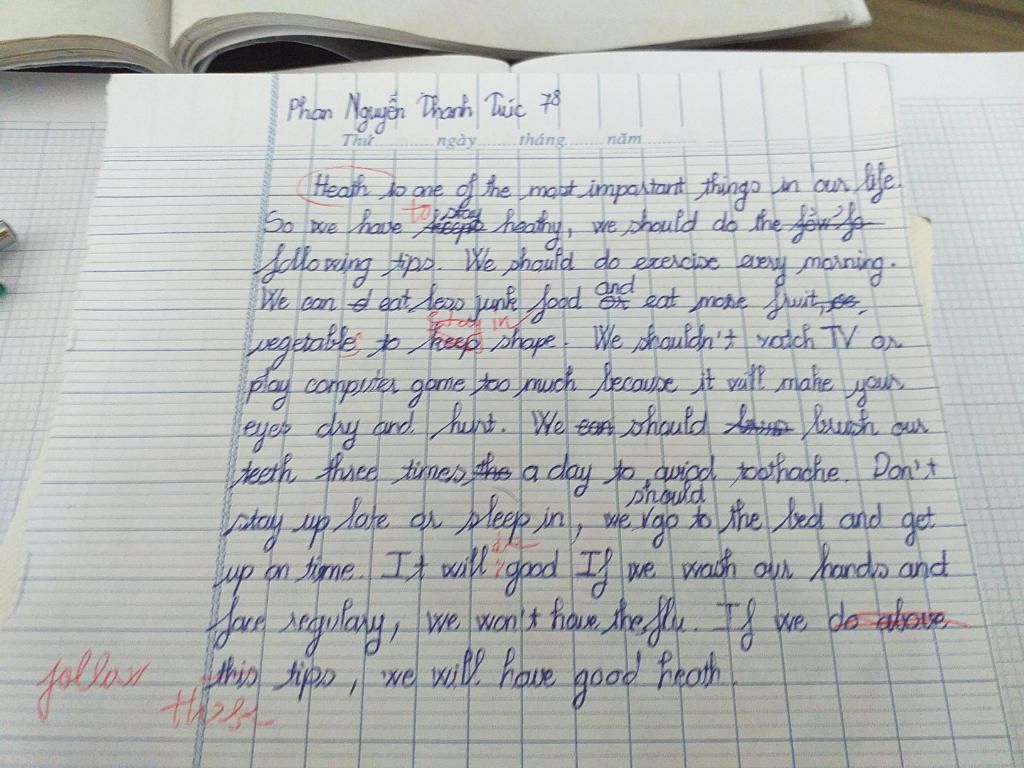 Phan Nguyễn Thanh Trúc 78
Thứ ngày tháng năm
Heath is one of the most important things in our life.
to stay
So we have keep heathy, we should do the
following tips. We should do exercise every morning.
and
We can eat less junk food or eat more fruit,
stay in
vegetables to keep shape. We shouldn't watch TV or
play computer game too much because it will make your
eyes dry and hurt. We can should brush our
teeth three times the a day to avoid toothache. Don't
should
stay up late or sleep in, we go to the bed and get
be
up on time. It will good If we wash our hands and
face regulary, we won't have the flu. If we do above
follow
this tips, we will have good heath.
these